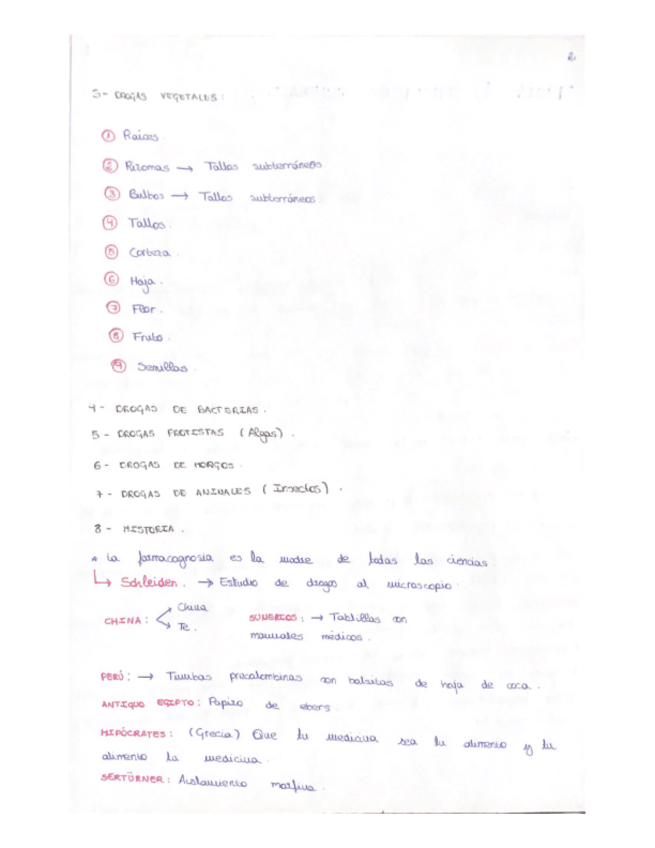 2
3- DROGAS VEGETALES:
① Raices.
② Rizomas → Tallos subterráneos
③ Bulbos → Tallos subterráneos.
④ Tallos.
⑤ Corteza.
⑥ Hoja.
⑦ Flor.
⑧ Fruto.
⑨ Semillas.
4- DROGAS DE BACTERIAS.
5- DROGAS PROTISTAS (Algas).
6- DROGAS DE HONGOS.
7- DROGAS DE ANIMALES (Insectos).
8- HISTORIA.
La farmacognosia es la madre de todas las ciencias
↳ Schleiden. → Estudio de drogas al microscopio.
CHINA: China
Te.
SUMERIOS: → Tablillas con
manuales médicos.
PERÚ: → Tumbas precolombinas con bolsitas de hoja de coca.
ANTIGUO EGIPTO: Papiro de ebers.
HIPÓCRATES: (Grecia) Que tu medicina sea tu alimento y tu
alimento la medicina.
SERTÜRNER: Aislamiento morfina.